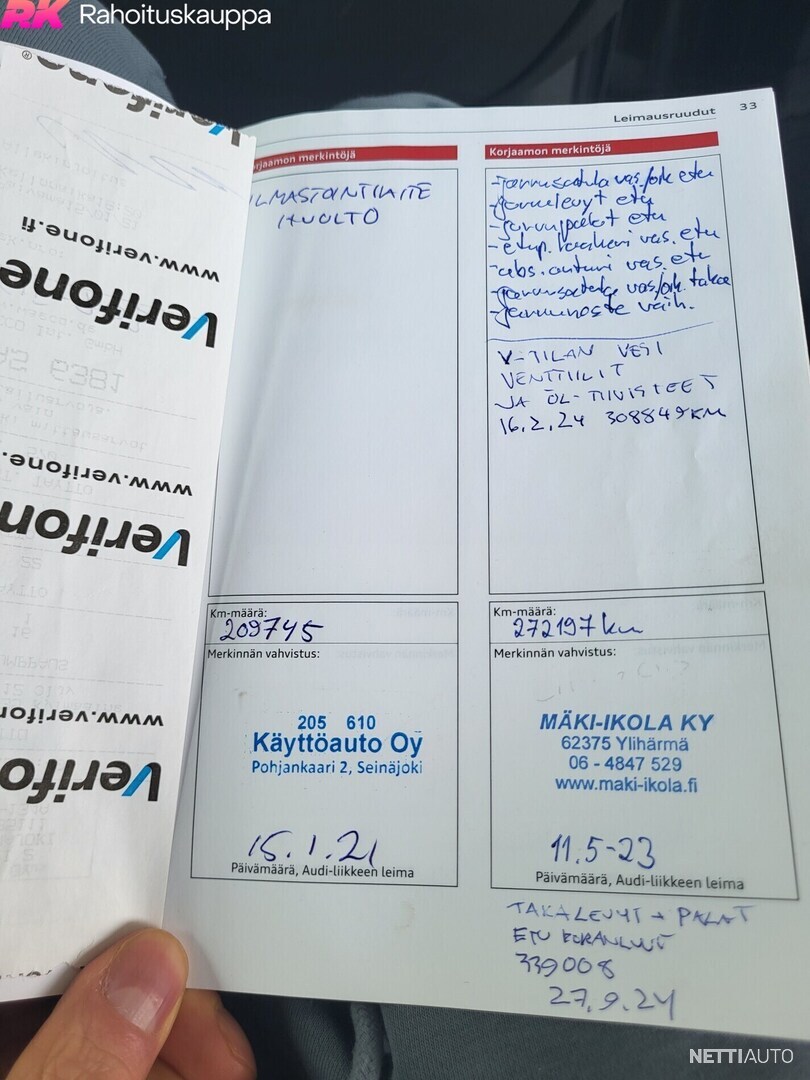 RK Rahoituskauppa
Verifone®
www.verifone.fi
Verifone
www.verifone.
Verifone
www.verifone
Verifone
Leimausruudut 33
Korjaamon merkintöjä
ILMASTOINTILAITE
HUOLTO
Km-määrä:
209745
Merkinnän vahvistus:
205 610
Käyttöauto Oy
Pohjankaari 2, Seinäjoki
15.1.21
Päivämäärä, Audi-liikkeen leima
Korjaamon merkintöjä
-jarrusatula vas/oik etu
-jarrulevyt etu
-jarrupalat etu
-etup. laakeri vas. etu
-abs. anturi vas. etu
-jarrusatula vas/oik. taka
-jarruneste vaih.
V-TILAN VESI
VENTTIILIT
JA ÖL-TIIVISTEET
16.2.24 308849KM
Km-määrä:
272197km
Merkinnän vahvistus:
MÄKI-IKOLA KY
62375 Ylihärmä
06 - 4847 529
www.maki-ikola.fi
11.5-23
Päivämäärä, Audi-liikkeen leima
TAKALEVYT + PALAT
ETU
339008
27.9.24
NETTIAUTO